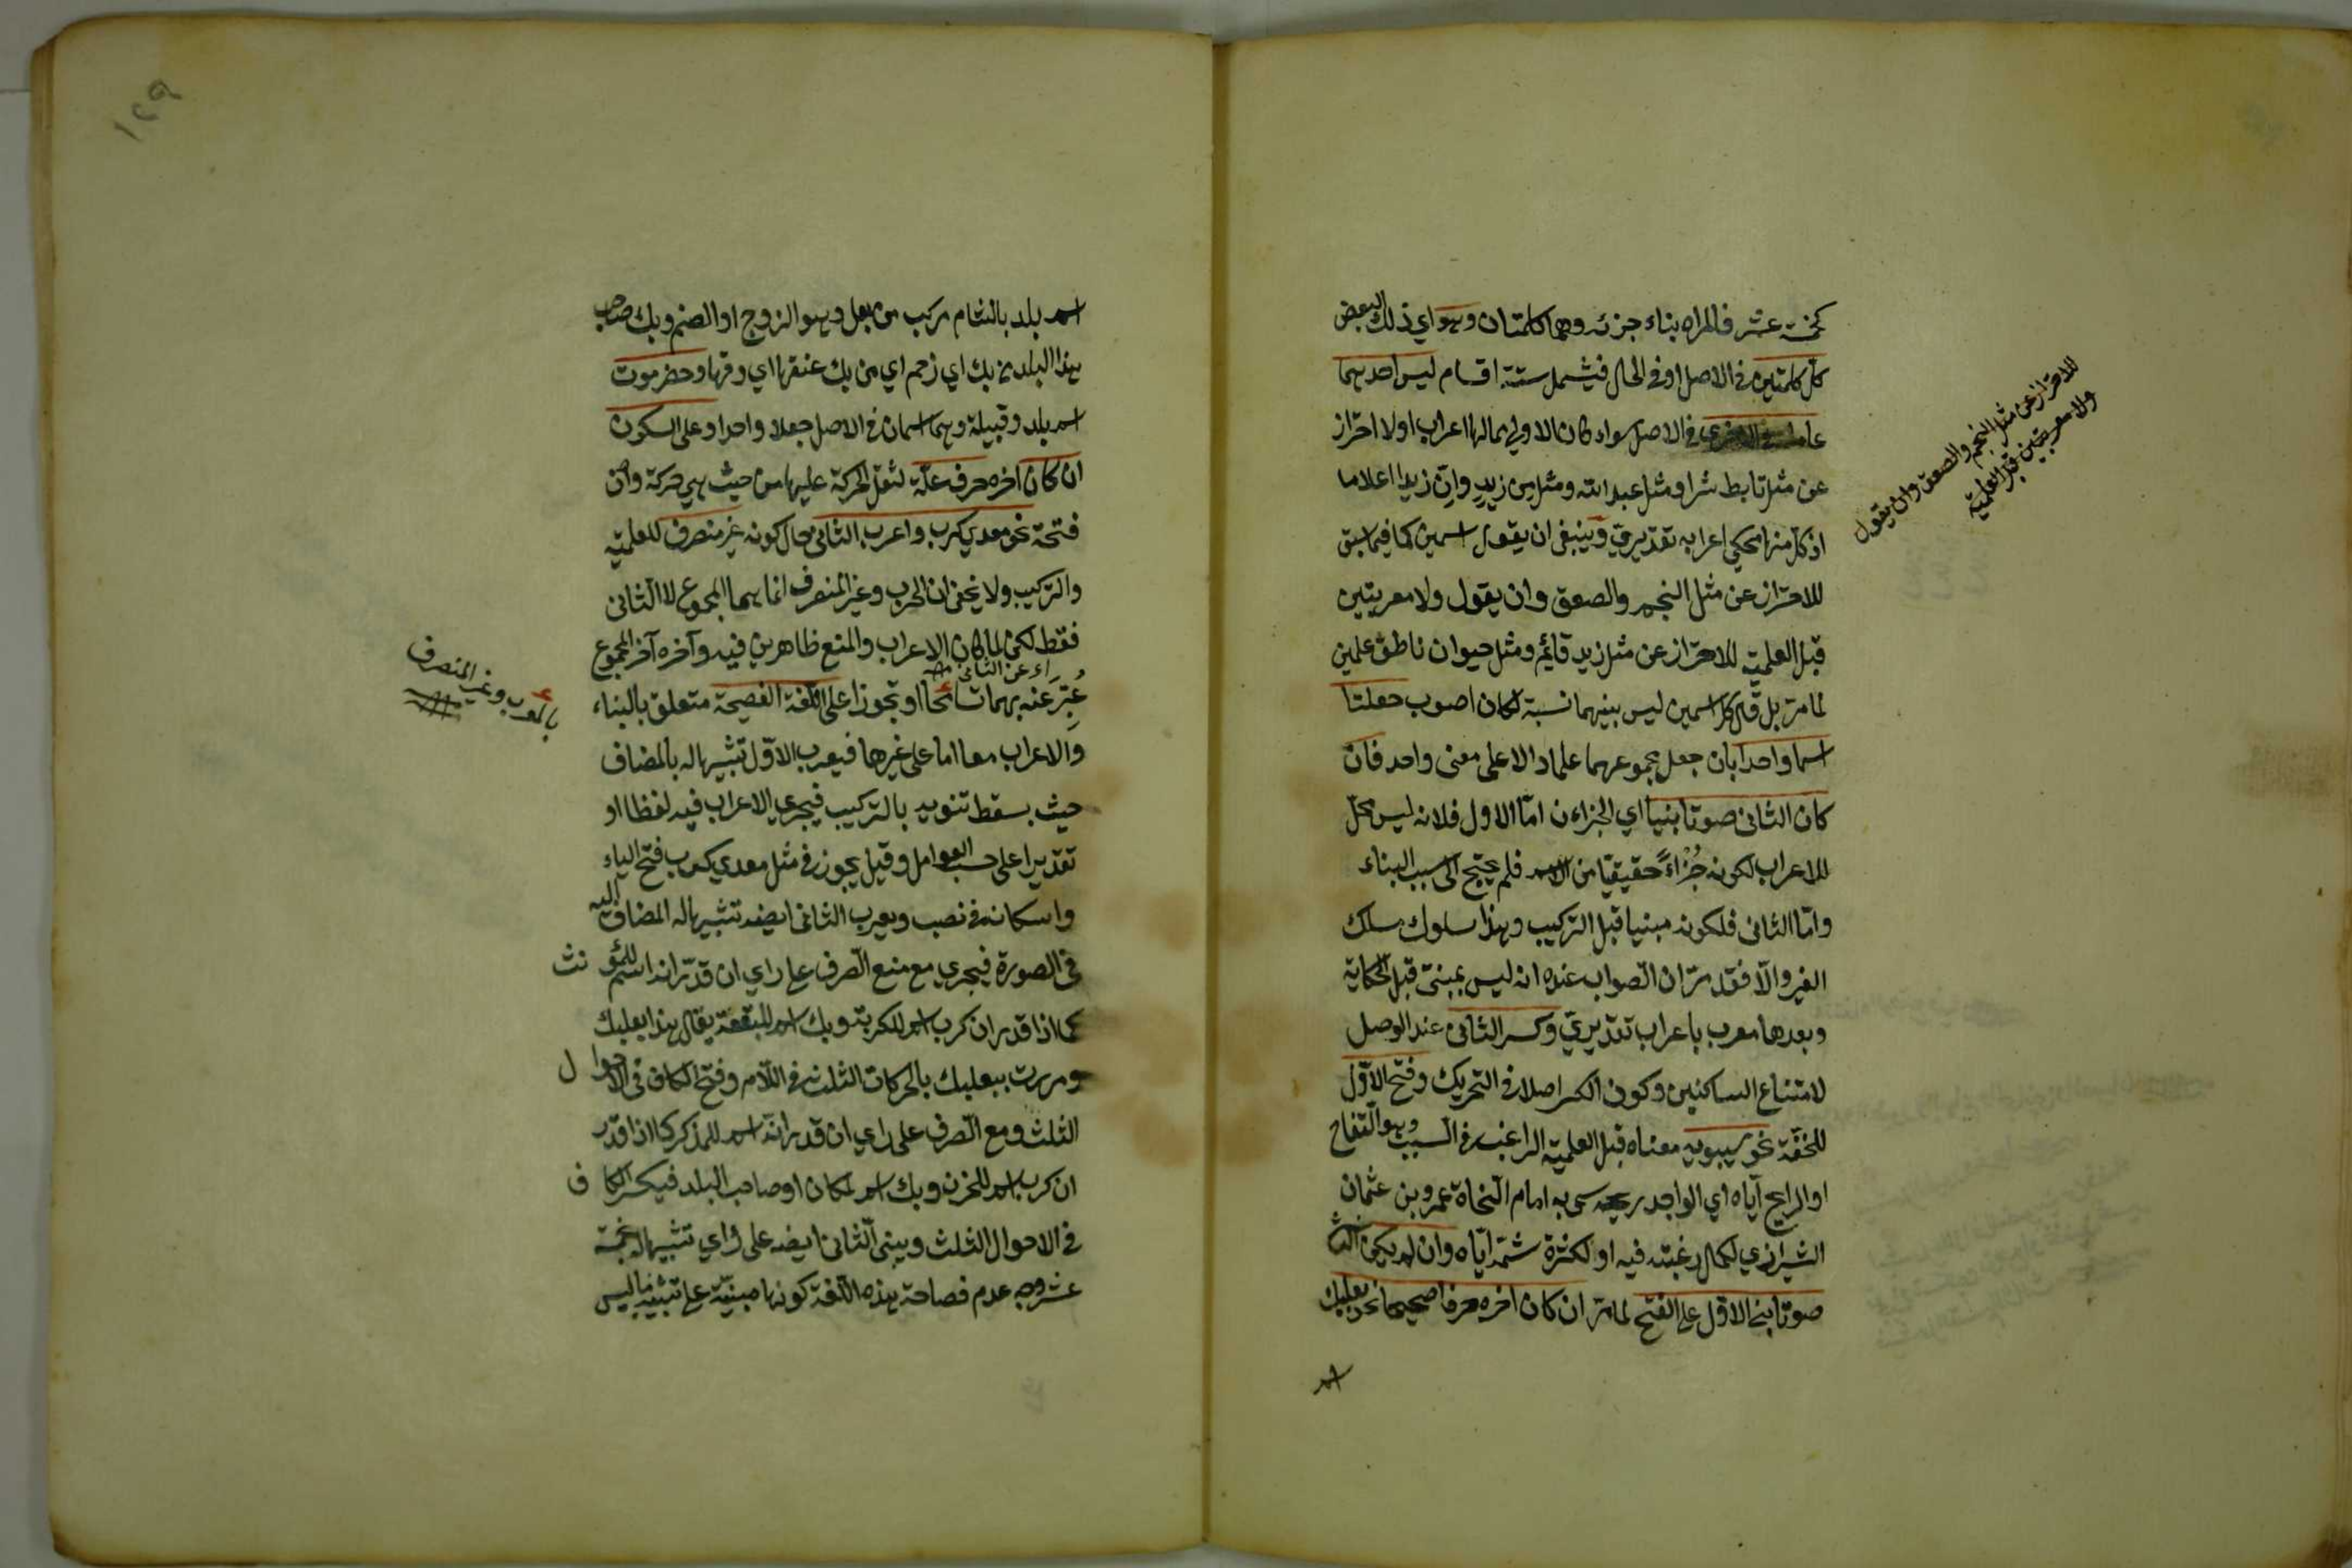 كخمسة عشر فالمراد بناء جزئه وهما كلمتان وهو اي ذلك البعض
كل كلمتين في الاصل او في الحال فيشمل ستة اقسام ليس احديهما
عاملة في الاخرى في الاصل سواء كان الاولى مما لها اعراب اولا احتراز
عن مثل تابط شرا ومثل عبد الله ومثل من زيد وان زيدا اعلاما
اذ كل منها محكي اعرابه تقديري وينبغي ان يقول اسمين كما فيما سبق
للاحتراز عن مثل النجم والصعق وان يقول ولا معربتين
قبل العلمية للاحتراز عن مثل زيد قائم ومثل حيوان ناطق علمين
لما مر بل قال كل اسمين ليس بينهما نسبة لكان اصوب جعلتا
اسما واحدا بان جعل مجموعهما علما دالا على معنى واحد فان
كان الثاني صوتا بنيا اي الجزاءن اما الاول فلانه ليس محل
للاعراب لكونه جزاءً حقيقيا من الاسم فلم يحتج الى سبب البناء
واما الثاني فلكونه مبنيا قبل التركيب وهذا سلوك مسلك
الغير والا فقد مر ان الصواب عنده انه ليس بمبني قبل الحكاية
وبعدها معرب باعراب تقديري وكسر الثاني عند الوصل
لامتناع الساكنين وكون الكسر اصلا في التحريك وفتح الاول
للخفة نحو سيبويه معناه قبل العلمية الراغب في السيب وهو التفاح
او الرايح اياه اي الواجد ريحه سمى به امام النحاة عمرو بن عثمان
الشيرازي لكمال رغبته فيه او لكثرة شمه اياه وان لم يكن الثاني
صوتا بني الاول على الفتح لما مر ان كان اخره حرفا صحيحا نحو بعلبك
اسم
للاحتراز عن مثل النجم والصعق وان يقول
ولا معربتين قبل العلمية
١٢٩
اسم بلد بالشام مركب من بعل وهو الزوج او الصنم وبك صاحب
هذا البلد من بك اي زحم اي من بك عنقها اي وقها وحضرموت
اسم بلد وقبيلة وهما اسمان في الاصل جعلا واحدا وعلى السكون
ان كان اخره حرف علة لثقل الحركة عليها من حيث هي حركة وان
فتحة نحو معديكرب واعرب الثاني حال كونه غير منصرف للعلمية
والتركيب ولا يخفى ان المعرب وغير المنصرف انما هما المجموع لا الثاني
فقط لكن لما كان الاعراب والمنع ظاهرين فيه وآخره آخر المجموع
اى عن الثاني
عُبِّرَ عنه بهما تسامحا او تجوزا على اللغة الفصيحة متعلق بالبناء
والاعراب معا اما على غيرها فيعرب الاول تشبيها له بالمضاف
حيث يسقط تنوينه بالتركيب فيجري الاعراب فيه لفظا او
تقديرا على حسب العوامل وقيل يجوز في مثل معديكرب فتح الياء
واسكانه في نصب ويعرب الثاني ايضا تشبيها له المضاف اليه
في الصورة فيجري مع منع الصرف على راي ان قدر انه اسم للمؤنث
كما اذا قدر ان كرب اسم للكربة وبك اسم للبقعة يقال هذا بعلبك
ومررت ببعلبك بالحركات الثلث في اللام وفتح الكاف في الاحوال
الثلث ومع الصرف على راي ان قدر انه اسم للمذكر كما اذا قدر
ان كرب اسم للحزن وبك اسم لمكان او صاحب البلد فيكسر الكاف
في الاحوال الثلث ويبنى الثاني ايضا على راي تشبيها له بخمسة
عشر وجه عدم فصاحة هذه اللغة كونها مبنية على تشبيه ما ليس
بالمعرب وغير المنصرف